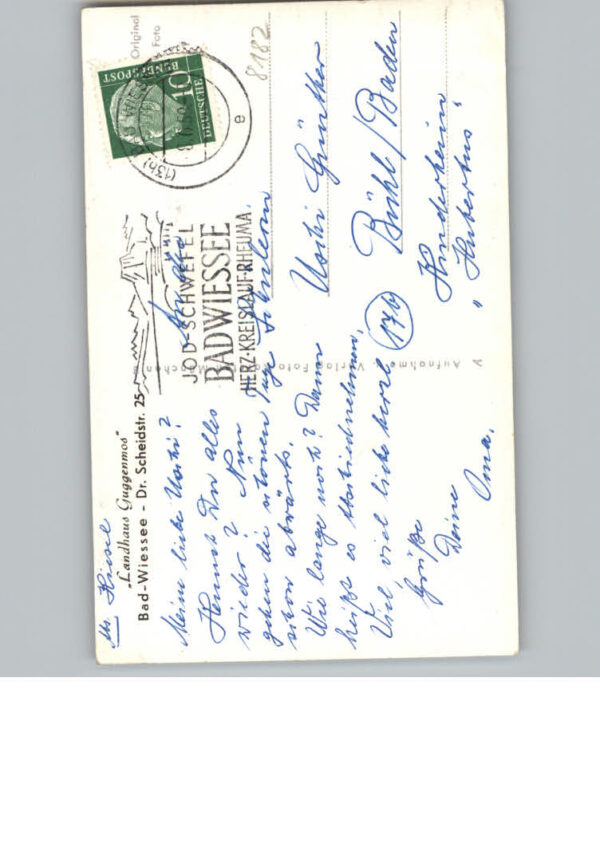 Abs. Kiesel
„Landhaus Guggenmos“
Bad-Wiessee - Dr. Scheidstr. 25
Meine liebe Uschi?
Kennst Du alles
wieder? Nun
gehen die schönen Tage
schon abwärts.
Wie lange noch? Dann
heißt es Abschiednehmen.
Viel, viel liebe herzl.
Grüße
Deine
Oma.
Original
Foto
8182
DEUTSCHE
BUNDESPOST
10
(13b) BAD WIESSEE
e
JOD-SCHWEFEL
BAD WIESSEE
HERZ-KREISLAUF-RHEUMA
Uschi Günther
17b
Bühl/Baden
Kinderheim
„Hubertus“
Aufnahme Verlag Foto München